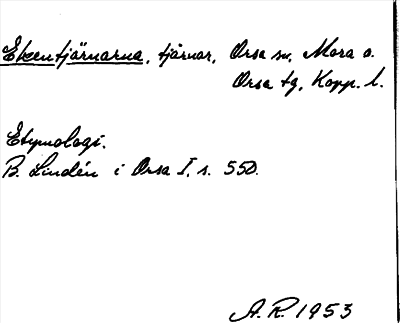 Eteentjärnarna, tjärnar, Orsa sn, Mora o.
Orsa tg, Kopp. l.
Etymologi.
B. Lindén i Orsa I, s. 550.
A. R. 1953